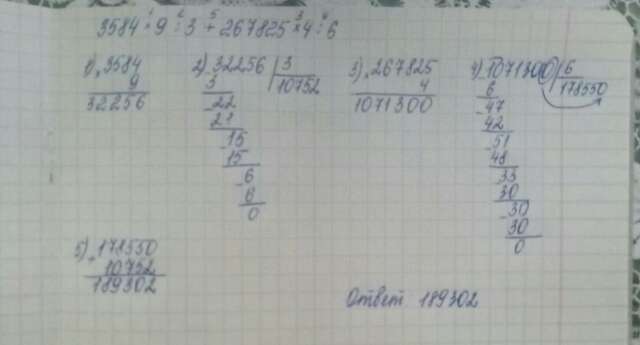 3584 · 9 : 3 + 267825 × 4 : 6
1) 3584
9
32256
2) 32256 | 3
3 10752
- 22
21
- 15
15
- 6
6
0
3) 267825
4
1071300
4) 1071300 | 6
6 178550
- 47
42
- 51
48
- 33
30
- 30
30
0
5) 178550
+ 10752
189302
Ответ 189302